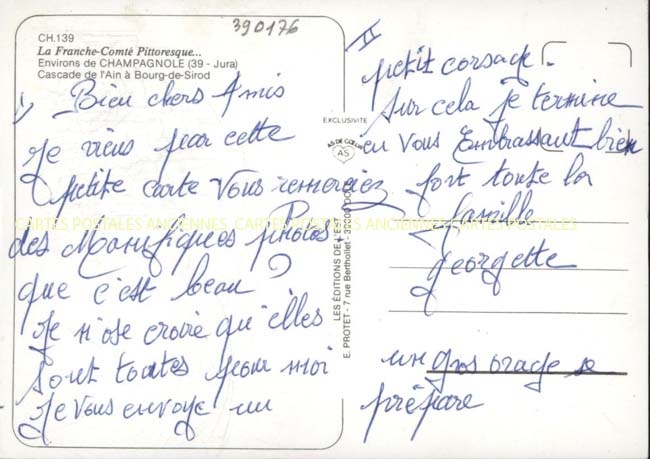 390176
CH.139
La Franche-Comté Pittoresque...
Environs de CHAMPAGNOLE (39 - Jura)
Cascade de l'Ain à Bourg-de-Sirod
I
Bien chers Amis
Je viens par cette
petite carte vous remerciez
des Manifiques photos
que c'est beau ?
Je n'ose croire qu'elles
sont toutes pour moi
Je vous envoye un
EXCLUSIVITE
AS DE CŒUR
AS
LES ÉDITIONS DE L'EST
E. PROTET - 7 rue Berthollet - 39000 DOLE
II
petit corsage.
Sur cela je termine
en vous Embrassant bien
fort toute la
famille
georgette
un gros orage se
prépare
CARTES POSTALES ANCIENNES, CARTES POSTALES ANCIENNES, CARTES POSTALES ANCIENNES